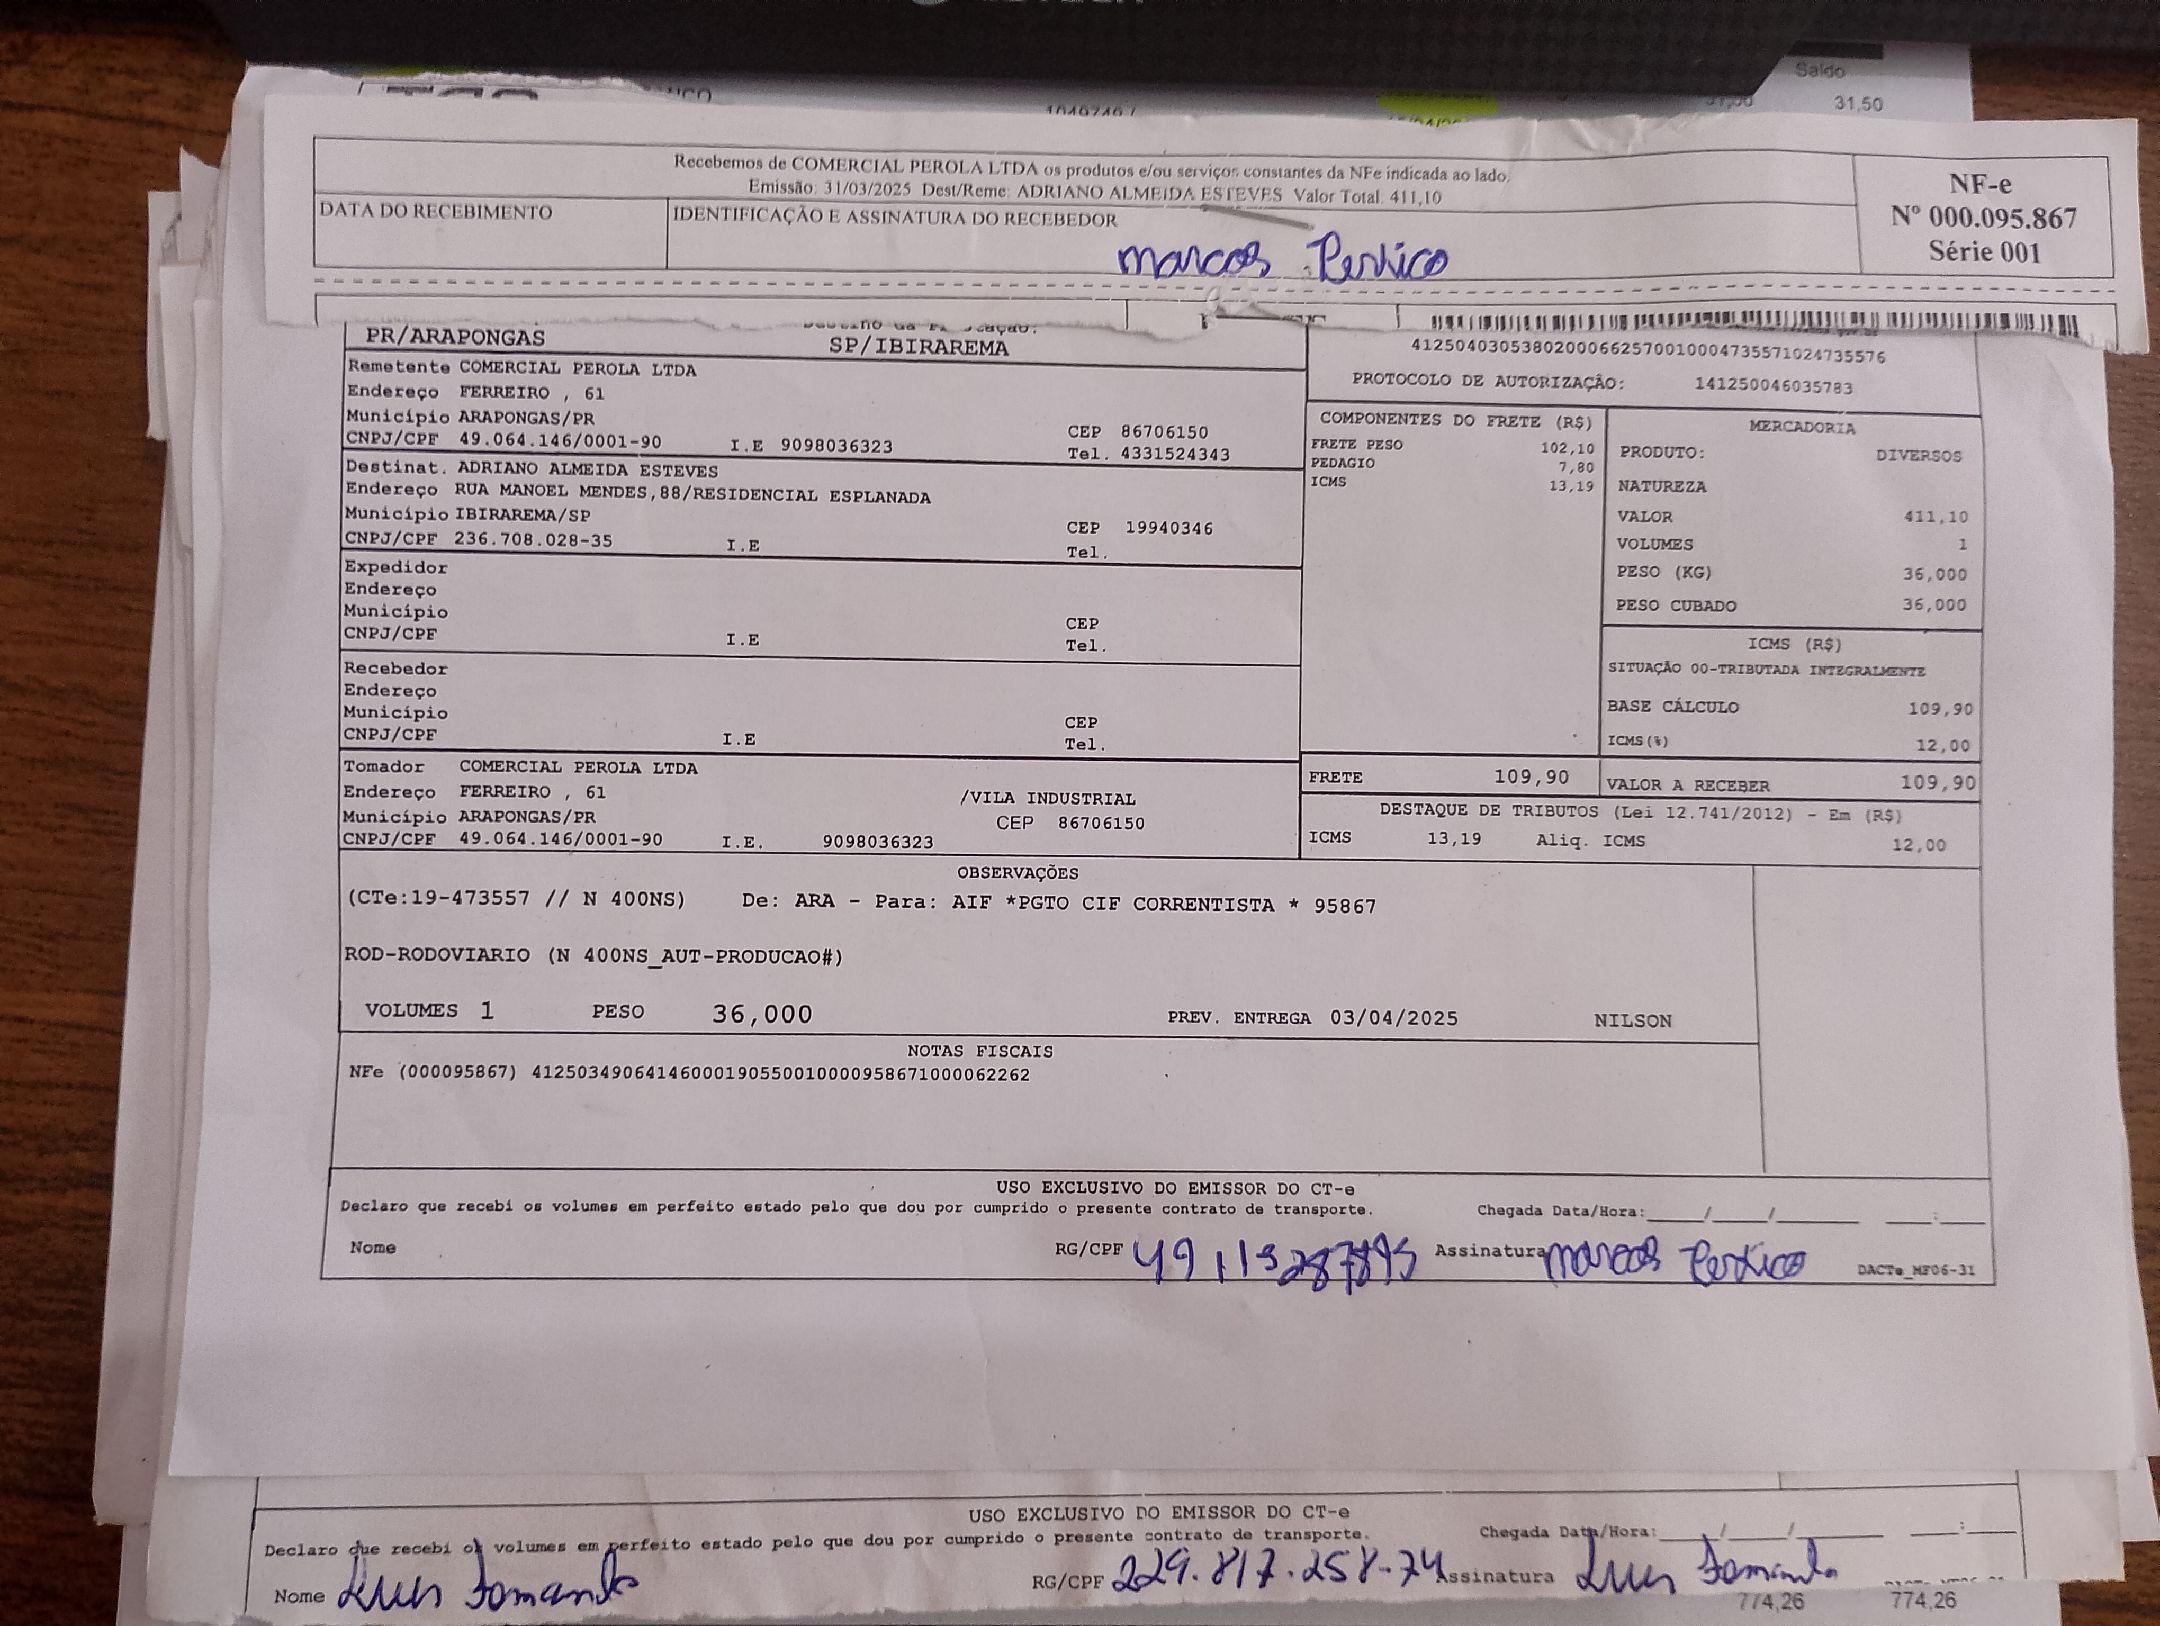 Saldo
31,50
Recebemos de COMERCIAL PEROLA LTDA os produtos e/ou serviços constantes da NFe indicada ao lado.
Emissão: 31/03/2025 Dest/Reme: ADRIANO ALMEIDA ESTEVES Valor Total: 411,10
DATA DO RECEBIMENTO
IDENTIFICAÇÃO E ASSINATURA DO RECEBEDOR
NF-e
Nº 000.095.867
Série 001
PR/ARAPONGAS
SP/IBIRAREMA
41250403053802000662570010004735571024735576
PROTOCOLO DE AUTORIZAÇÃO: 141250046035783
Remetente COMERCIAL PEROLA LTDA
Endereço FERREIRO , 61
Município ARAPONGAS/PR
CEP 86706150
CNPJ/CPF 49.064.146/0001-90 I.E 9098036323 Tel. 4331524343
Destinat. ADRIANO ALMEIDA ESTEVES
Endereço RUA MANOEL MENDES,88/RESIDENCIAL ESPLANADA
Município IBIRAREMA/SP CEP 19940346
CNPJ/CPF 236.708.028-35 I.E Tel.
Expedidor
Endereço
Município CEP
CNPJ/CPF I.E Tel.
Recebedor
Endereço
Município CEP
CNPJ/CPF I.E Tel.
Tomador COMERCIAL PEROLA LTDA
Endereço FERREIRO , 61 /VILA INDUSTRIAL
Município ARAPONGAS/PR CEP 86706150
CNPJ/CPF 49.064.146/0001-90 I.E. 9098036323
COMPONENTES DO FRETE (R$)
FRETE PESO 102,10
PEDAGIO 7,80
ICMS 13,19
MERCADORIA
PRODUTO: DIVERSOS
NATUREZA
VALOR 411,10
VOLUMES 1
PESO (KG) 36,000
PESO CUBADO 36,000
ICMS (R$)
SITUAÇÃO 00-TRIBUTADA INTEGRALMENTE
BASE CÁLCULO 109,90
ICMS(%) 12,00
FRETE 109,90
VALOR A RECEBER 109,90
DESTAQUE DE TRIBUTOS (Lei 12.741/2012) - Em (R$)
ICMS 13,19 Aliq. ICMS 12,00
OBSERVAÇÕES
(CTe:19-473557 // N 400NS) De: ARA - Para: AIF *PGTO CIF CORRENTISTA * 95867
ROD-RODOVIARIO (N 400NS_AUT-PRODUCAO#)
VOLUMES 1 PESO 36,000 PREV. ENTREGA 03/04/2025 NILSON
NOTAS FISCAIS
NFe (000095867) 41250349064146000190550010000958671000062262
USO EXCLUSIVO DO EMISSOR DO CT-e
Declaro que recebi os volumes em perfeito estado pelo que dou por cumprido o presente contrato de transporte. Chegada Data/Hora:____/____/______ ___:___
Nome RG/CPF Assinatura marcos DACTe_MF06-31
USO EXCLUSIVO DO EMISSOR DO CT-e
Declaro que recebi os volumes em perfeito estado pelo que dou por cumprido o presente contrato de transporte. Chegada Data/Hora:____/____/______ ___:___
Nome Luis RG/CPF 229.817.258-74 Assinatura Luis
774,26 774,26